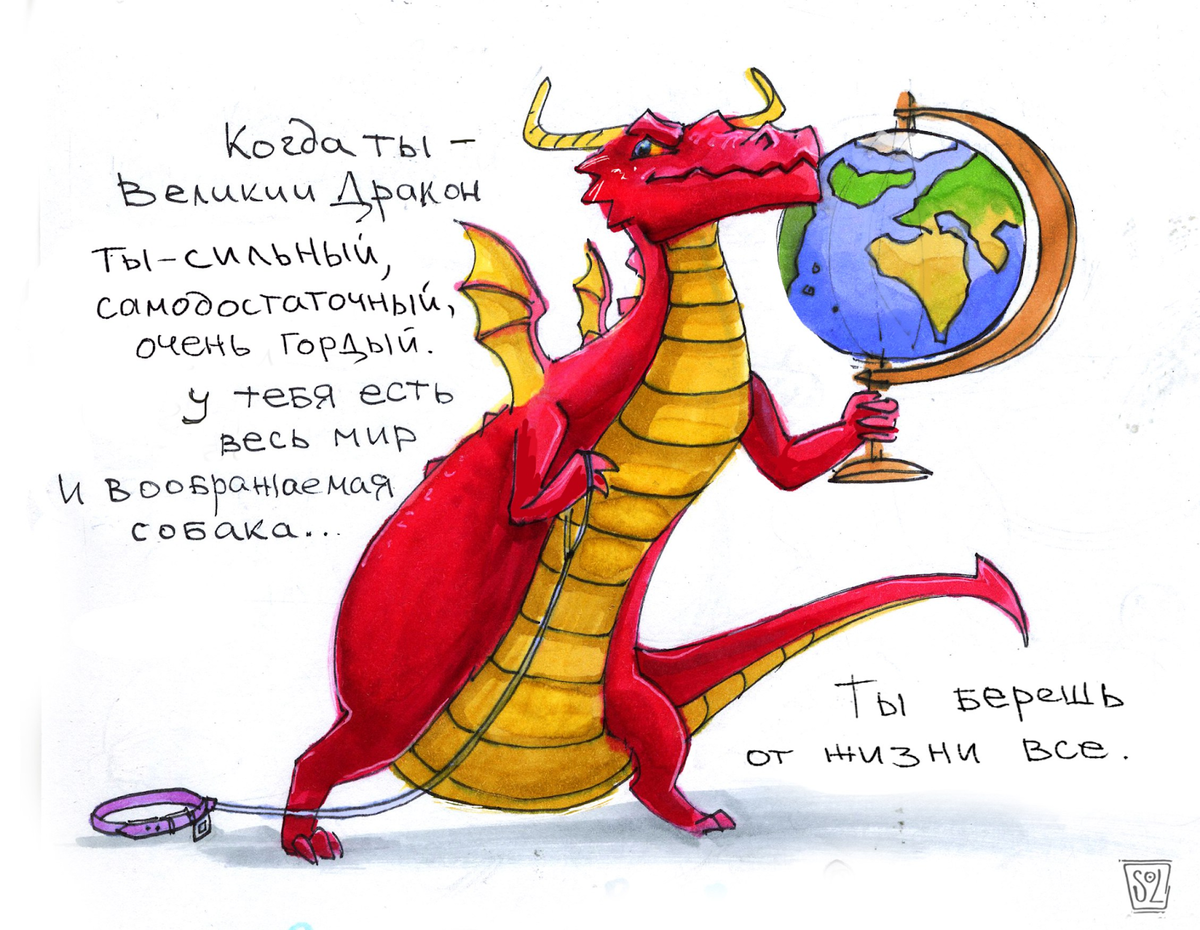 Когда ты –
Великий Дракон
ты-сильный,
самодостаточный,
очень гордый.
у тебя есть
весь мир
и воображаемая
собака...
Ты берешь
от жизни все.
SOL